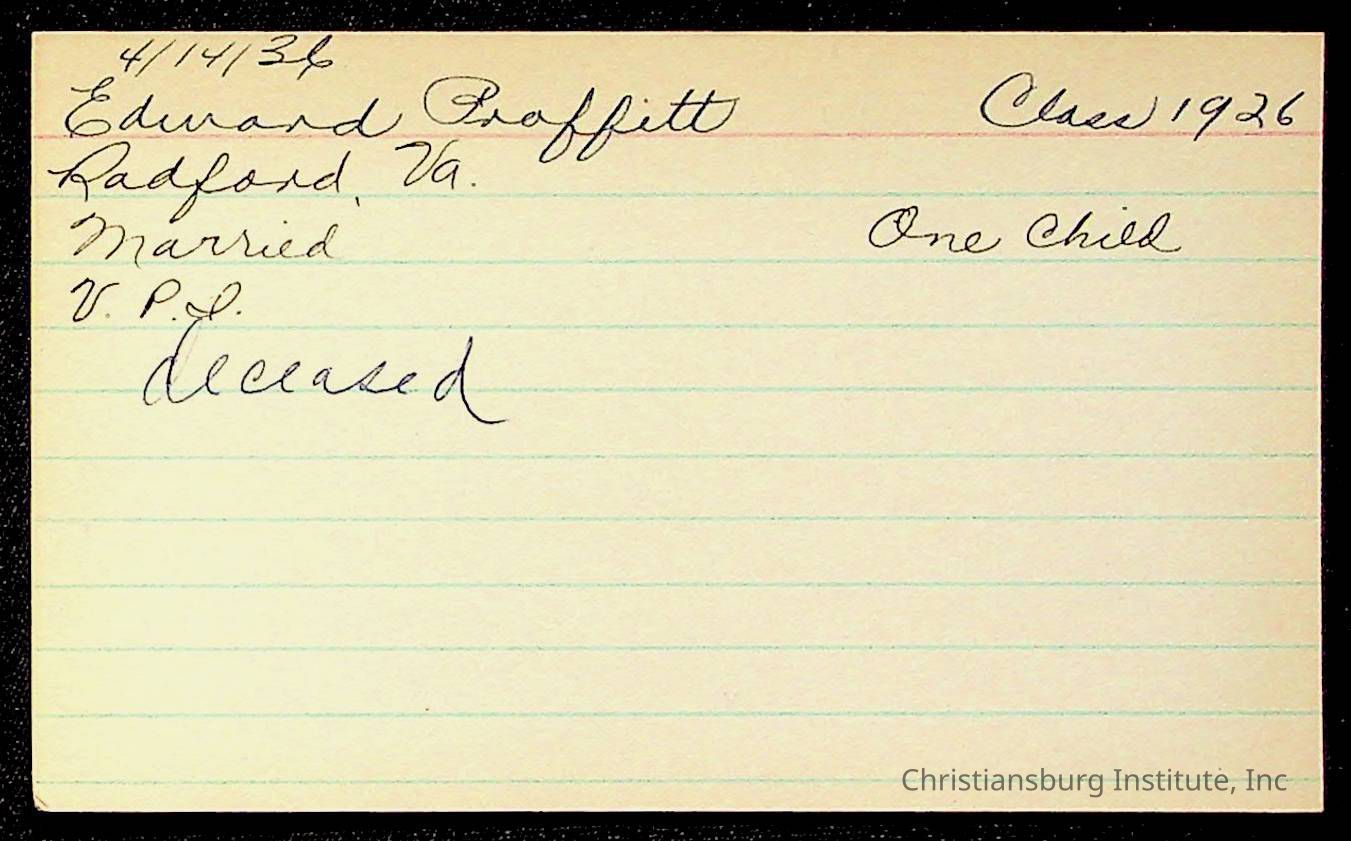 4/14/36
Edward Proffitt Class 1926
Radford, Va.
Married One Child
V. P. I.
deceased
Christiansburg Institute, Inc